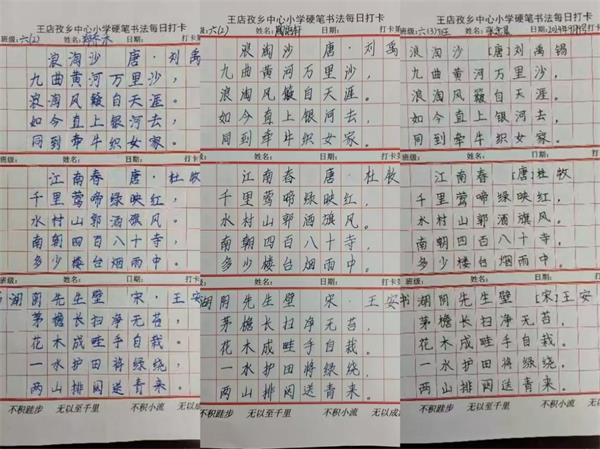 王店孜乡中心小学硬笔书法每日打卡
班级:六(2) 姓名: 日期:
浪淘沙 唐·刘禹
九曲黄河万里沙,
浪淘风簸自天涯。
如今直上银河去,
同到牵牛织女家。
班级: 姓名: 日期: 打卡
江南春 唐·杜牧
千里莺啼绿映红,
水村山郭酒旗风。
南朝四百八十寺,
多少楼台烟雨中。
班级: 姓名: 日期: 打卡
书湖阴先生壁 宋·王安
茅檐长扫净无苔,
花木成畦手自栽。
一水护田将绿绕,
两山排闼送青来。
不积跬步 无以至千里 不积小流 无以
王店孜乡中心小学硬笔书法每日打卡
六(2) 姓名: 日期:
浪淘沙 唐·刘禹
九曲黄河万里沙,
浪淘风簸自天涯。
如今直上银河去,
同到牵牛织女家。
姓名: 日期: 打卡
江南春 唐·杜牧
千里莺啼绿映红,
水村山郭酒旗风。
南朝四百八十寺,
多少楼台烟雨中。
姓名: 日期: 打卡第
湖阴先生壁 宋·王安
茅檐长扫净无苔,
花木成畦手自栽。
一水护田将绿绕,
两山排闼送青来。
不积跬步 无以至千里 不积小流 无以成
王店孜乡中心小学硬笔书法每日打卡
班级:六(3)班 姓名: 日期:
浪淘沙 [唐]刘禹锡
九曲黄河万里沙,
浪淘风簸自天涯。
如今直上银河去,
同到牵牛织女家。
班级: 姓名: 日期: 打卡
江南春 [唐]杜牧
千里莺啼绿映红,
水村山郭酒旗风。
南朝四百八十寺,
多少楼台烟雨中。
班级: 姓名: 日期: 打卡
书湖阴先生壁 [宋]王安
茅檐长扫净无苔,
花木成畦手自栽。
一水护田将绿绕,
两山排闼送青来。
不积跬步 无以至千里 不积小流 无以